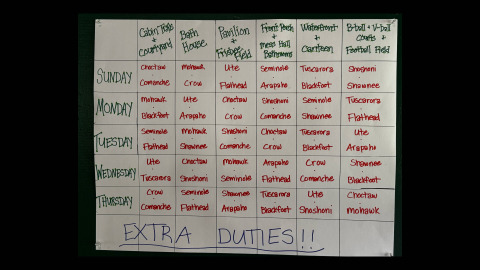 Cabin Trails + Courtyard
Bath House
Pavilion + Frisbee Field
Front Porch + Mess Hall Bathrooms
Waterfront + Canteen
B-ball + V-ball Courts + Football Field
SUNDAY
Choctaw Mohawk Ute Seminole Tuscarora Shoshoni
Comanche Crow Flathead Arapaho Blackfoot Shawnee
MONDAY
Mohawk Ute Choctaw Shoshoni Seminole Tuscarora
Blackfoot Arapaho Crow Comanche Shawnee Flathead
TUESDAY
Seminole Mohawk Shoshoni Choctaw Tuscarora Ute
Flathead Shawnee Comanche Crow Blackfoot Arapaho
WEDNESDAY
Ute Choctaw Mohawk Arapaho Crow Shawnee
Tuscarora Shoshoni Seminole Flathead Comanche Blackfoot
THURSDAY
Crow Seminole Shawnee Tuscarora Ute Choctaw
Comanche Flathead Arapaho Blackfoot Shoshoni Mohawk
EXTRA DUTIES!!